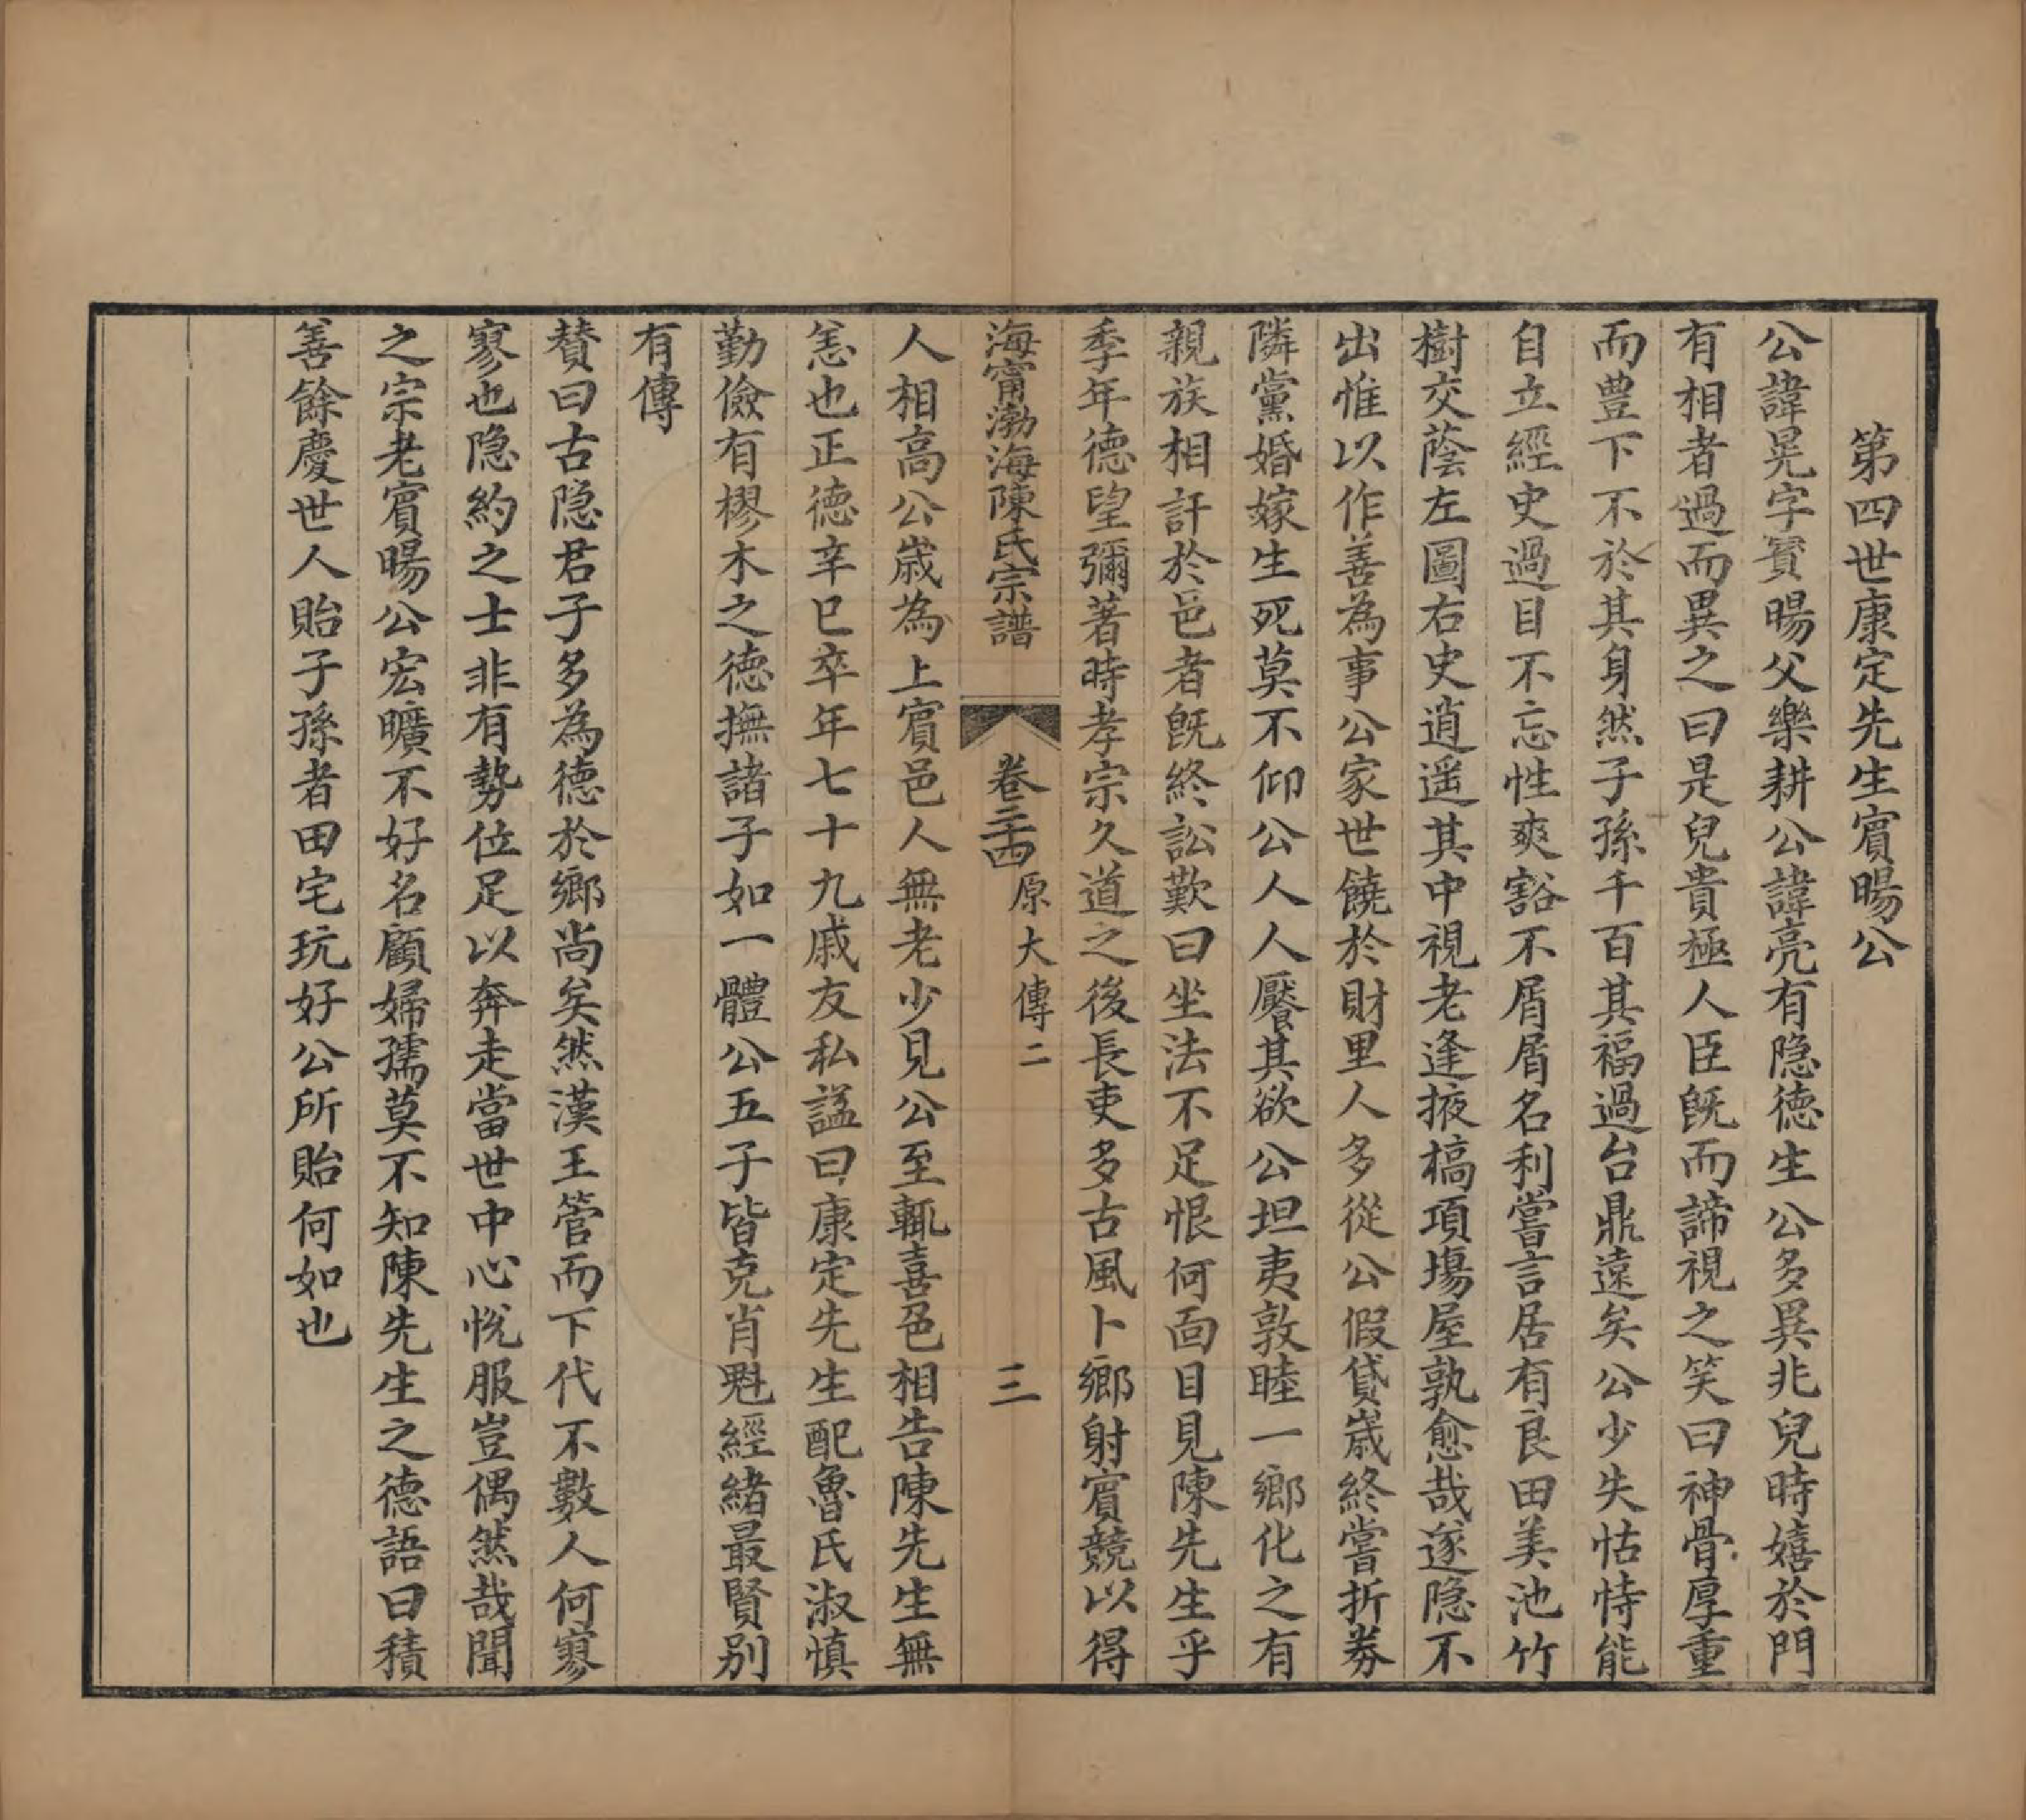 第四世康定先生賓暘公
公諱晃字賓暘父樂耕公諱亮有隐德生公多異兆兒時嬉於門
有相者過而異之曰是兒貴極人臣旣而諦視之笑曰神骨厚重
而豊下不於其身然子孫千百其福過台鼎遠矣公少失怙恃能
自立經史過目不忘性爽豁不屑屑名利嘗言居有良田美池竹
樹交蔭左圖右史逍遥其中視老逢掖槁項塲屋孰愈哉遂隐不
出惟以作善為事公家世饒於財里人多從公假貸歳終嘗折劵
隣黨婚嫁生死莫不仰公人人饜其欲公坦夷敦睦一鄉化之有
親族相訐於邑者旣終訟歎曰坐法不足恨何面目見陳先生乎
季年德望彌著時孝宗久道之後長吏多古風卜鄉射賓競以得
海甯渤海陳氏宗譜 卷二十四 原大傳二 三
人相高公歳為上賓邑人無老少見公至輒喜色相告陳先生無
恙也正德辛巳卒年七十九戚友私謚曰康定先生配魯氏淑慎
勤儉有樛木之德撫諸子如一體公五子皆克肖魁經緒最賢别
有傳
贊曰古隐君子多為德於鄉尚矣然漢王管而下代不數人何寥
寥也隐約之士非有勢位足以奔走當世中心悦服豈偶然哉聞
之宗老賓暘公宏曠不好名顧婦孺莫不知陳先生之德語曰積
善餘慶世人貽子孫者田宅玩好公所貽何如也